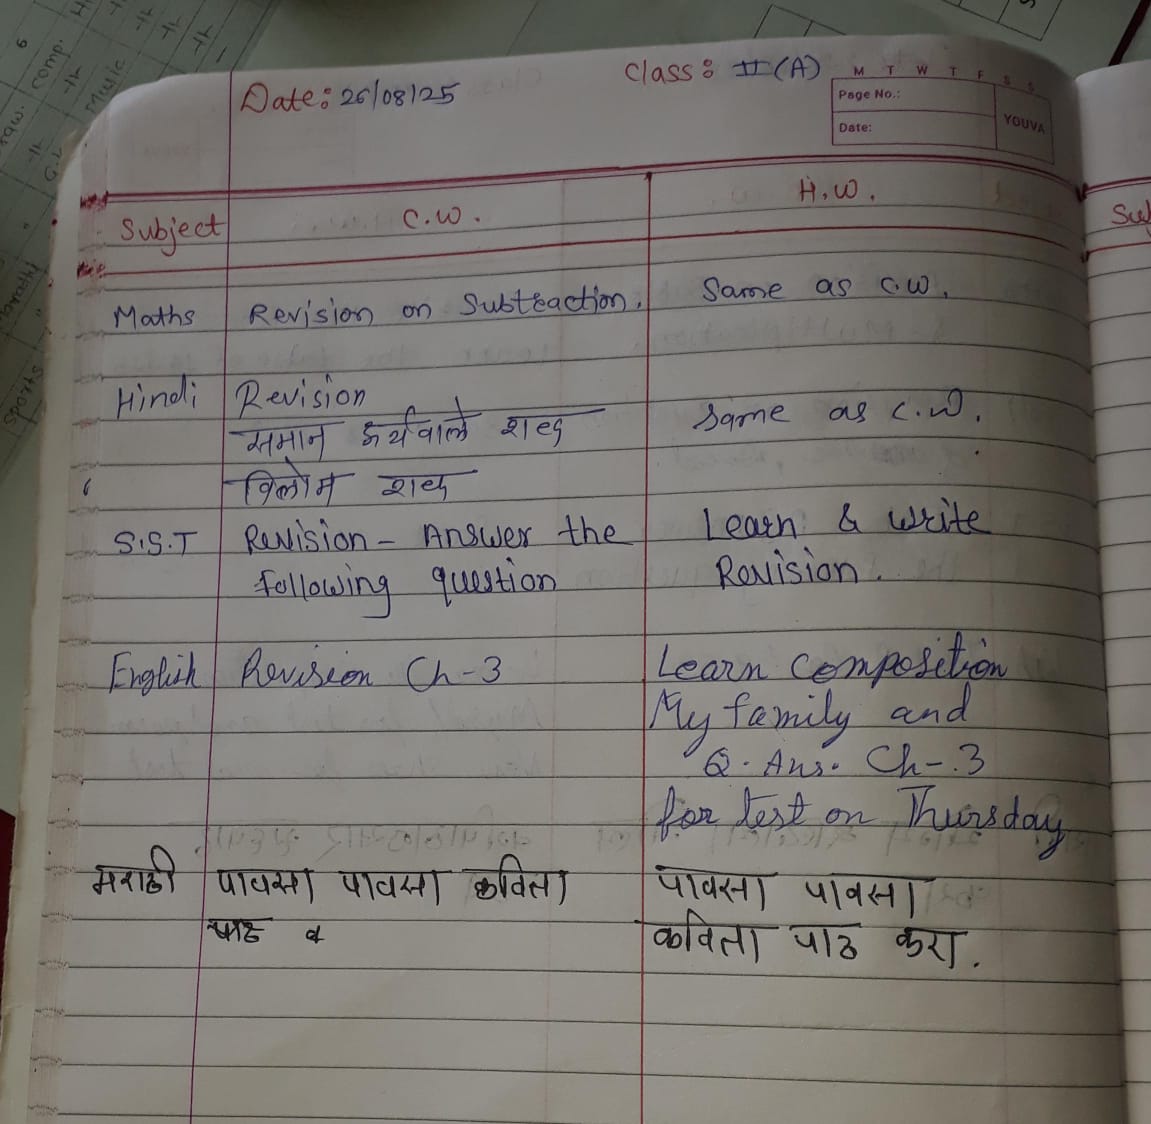 Date: 26/08/25
Class: II (A)
M T W T F S S
Page No.:
Date:
YOUVA
Subject C.W. H.W.
Maths Revision on Subtraction. Same as C.W.
Hindi Revision
समान अर्थवाले शब्द Same as C.W.
विलोम शब्द
S.S.T Revision - Answer the Learn & write
following question Revision.
English Revision Ch-3 Learn Composition
My family and
Q. Ans. Ch-3
for test on Thursday
मराठी पावसा पावसा कविता पावसा पावसा
पाठ व कविता पाठ करा.